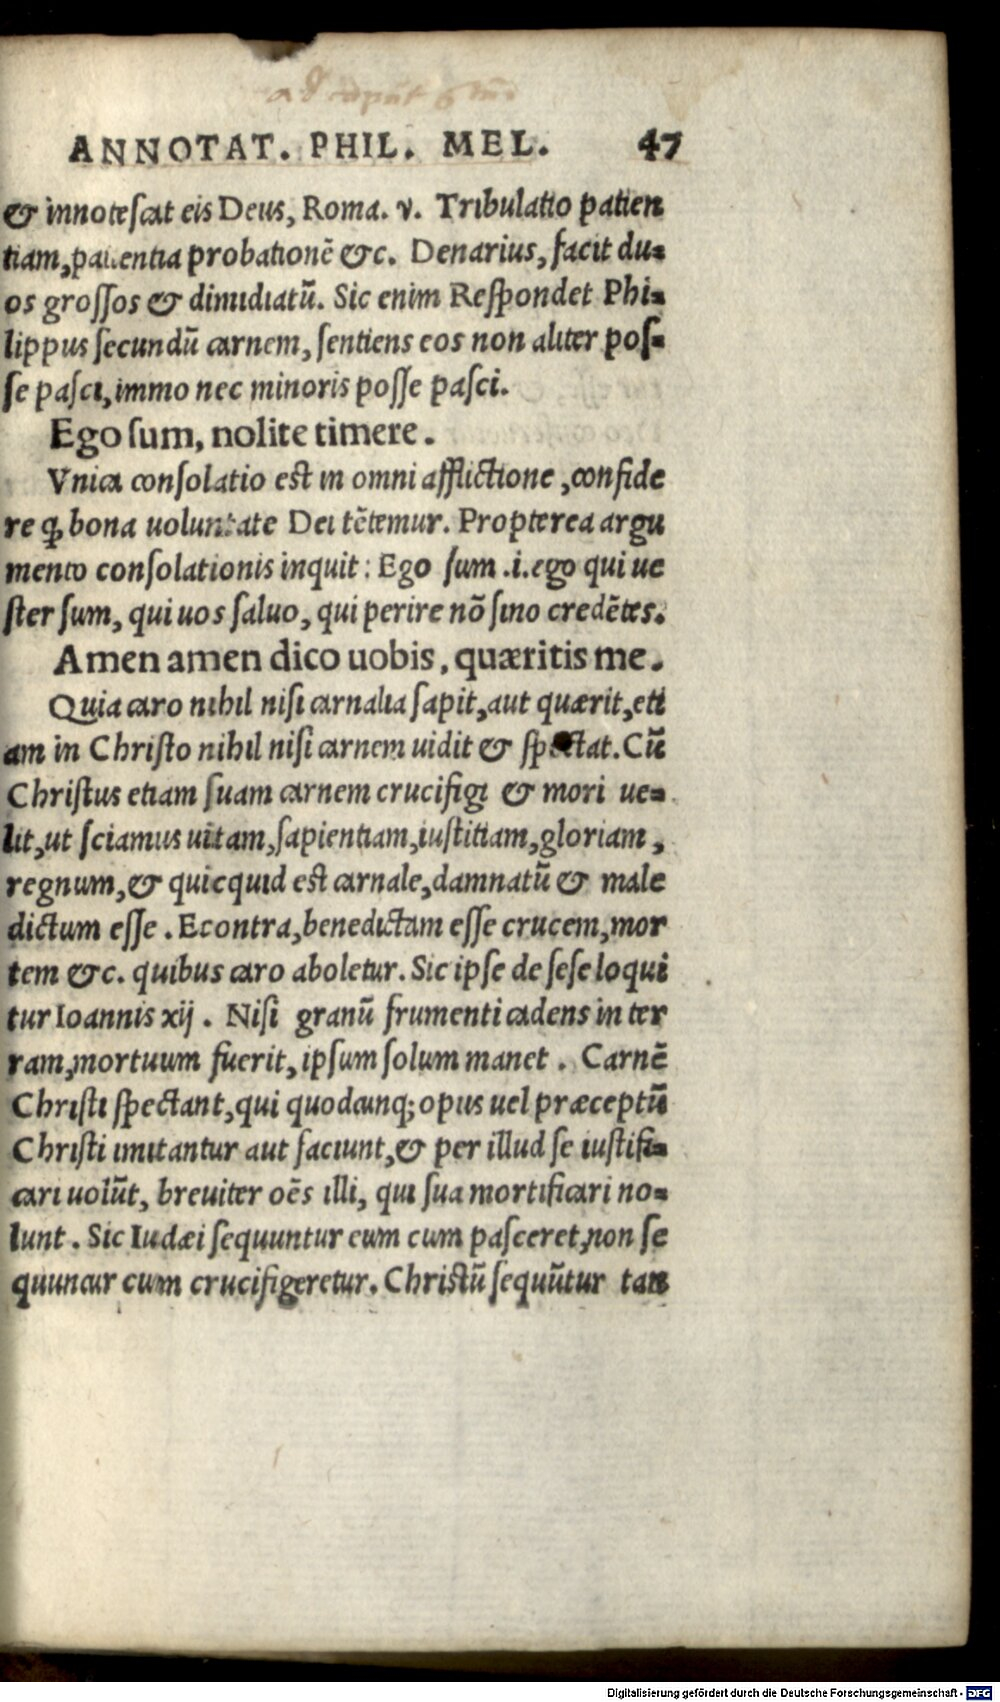 ANNOTAT. PHIL. MEL. 47
& innotescat eis Deus, Roma. v. Tribulatio patien
tiam, patientia probationē &c. Denarius, facit du-
os grossos & dimidiatū. Sic enim Respondet Phi-
lippus secundū carnem, sentiens eos non aliter pos-
se pasci, immo nec minoris posse pasci.
Ego sum, nolite timere.
Vnica consolatio est in omni afflictione, confide
re ꝙ bona uoluntate Dei tētemur. Propterea argu
mento consolationis inquit: Ego sum .i. ego qui ue
ster sum, qui uos saluo, qui perire nō sino credētes.
Amen amen dico uobis, quæritis me.
Quia caro nihil nisi carnalia sapit, aut quærit, eti
am in Christo nihil nisi carnem uidit & spectat. Cū
Christus etiam suam carnem crucifigi & mori ue-
lit, ut sciamus uitam, sapientiam, iustitiam, gloriam,
regnum, & quicquid est carnale, damnatū & male
dictum esse. Econtra, benedictam esse crucem, mor
tem &c. quibus caro aboletur. Sic ipse de sese loqui
tur Ioannis xij. Nisi granū frumenti cadens in ter
ram, mortuum fuerit, ipsum solum manet. Carnē
Christi spectant, qui quodcunq; opus uel præceptū
Christi imitantur aut faciunt, & per illud se iustifi-
cari uolūt, breuiter oēs illi, qui sua mortificari no-
lunt. Sic Iudæi sequuntur eum cum pasceret, non se
quuntur cum crucifigeretur. Christū sequūtur tan
Digitalisierung gefördert durch die Deutsche Forschungsgemeinschaft - DFG